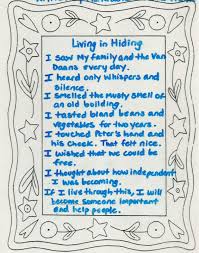 Living in Hiding
I saw My family and the Van
Daans every day.
I heard only whispers and
silence.
I smelled the musty smell of
an old building.
I tasted bland beans and
vegetables for two years.
I touched Peter's hand and
his cheek. That felt nice.
I wished that we could be
free.
I thought about how independent
I was becoming.
If I live through this, I will
become someone important
and help people.